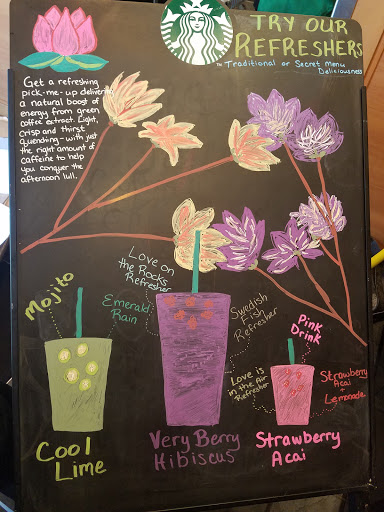 TRY OUR
REFRESHERS
TM Traditional or Secret Menu
Deliciousness
Get a refreshing
pick-me-up delivering
a natural boost of
energy from green
coffee extract. Light,
crisp and thirst
quenching - with just
the right amount of
caffeine to help
you conquer the
afternoon lull.
Mojito
Emerald
Rain
Cool
Lime
Love on
the Rocks
Refresher
Swedish
Fish
Refresher
Love is
in the Air
Refresher
Very Berry
Hibiscus
Pink
Drink
Strawberry
Acai
+
Lemonade
Strawberry
Acai